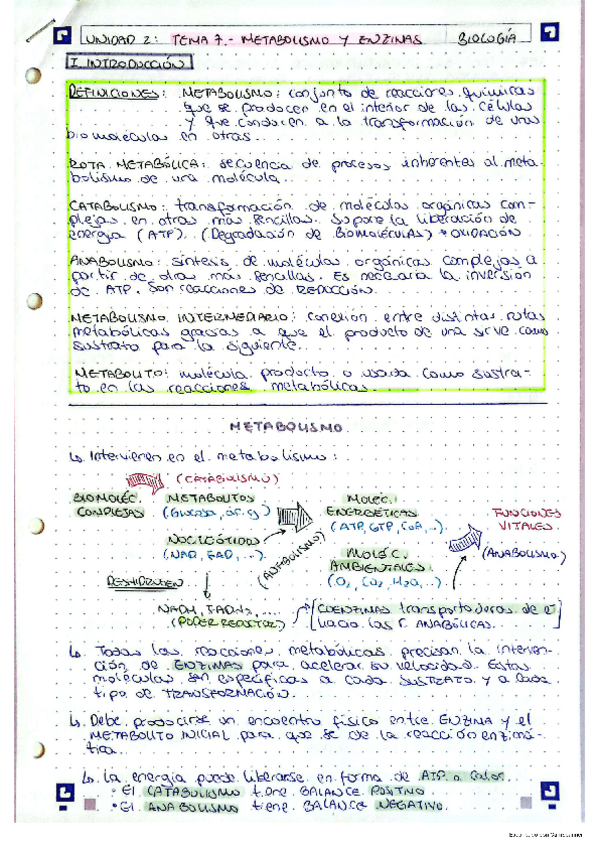 UNIDAD 2: TEMA 7.- METABOLISMO Y ENZIMAS BIOLOGÍA
I. INTRODUCCIÓN
DEFINICIONES: METABOLISMO: conjunto de reacciones químicas
que se producen en el interior de las células
y que conducen a la transformación de unas
biomoléculas en otras.
RUTA METABÓLICA: secuencia de procesos inherentes al meta-
bolismo de una molécula.
CATABOLISMO: transformación de moléculas orgánicas com-
plejas en otras más sencillas. Supone la liberación de
energía (ATP). (Degradación de BIOMOLÉCULAS) OXIDACIÓN
ANABOLISMO: síntesis de moléculas orgánicas complejas a
partir de otras más sencillas. Es necesaria la inversión
de ATP. Son reacciones de REDUCCIÓN.
METABOLISMO INTERMEDIARIO: conexión entre distintas rutas
metabólicas gracias a que el producto de una sirve como
sustrato para la siguiente.
METABOLITO: molécula producto o usada como sustra-
to en las reacciones metabólicas.
METABOLISMO
Intervienen en el metabolismo:
(CATABOLISMO)
BIOMOLÉC. METABOLITOS MOLÉC. FUNCIONES
COMPLEJAS (Glucosa, ác. g) ENERGÉTICAS VITALES
(ATP, GTP, CoA, ..)
NUCLEÓTIDOS MOLÉC. (ANABOLISMO)
(NAD, FAD, ..) (ANABOLISMO) AMBIENTALES
(O2, CO2, H2O, ..)
NADH, FADH2, ....
(PODER REDUCTOR) [COENZIMAS transportadoras de e-
hacia las r. ANABÓLICAS.
Todas las reacciones metabólicas precisan la interven-
ción de ENZIMAS para acelerar su velocidad. Estas
moléculas son específicas a cada SUSTRATO y a cada
tipo de TRANSFORMACIÓN.
Debe producirse un encuentro físico entre ENZIMA y el
METABOLITO INICIAL para que se de la reacción enzimá-
tica.
La energía puede liberarse en forma de ATP o calor.
• El CATABOLISMO tiene BALANCE POSITIVO
• El ANABOLISMO tiene BALANCE NEGATIVO.